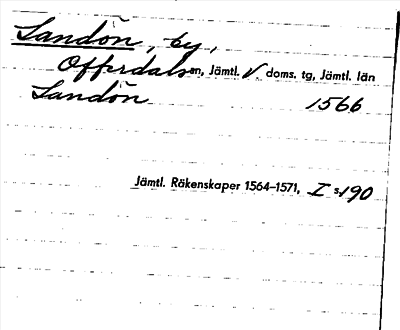 Landön, by,
Offerdals sn, Jämtl. V. doms. tg, Jämtl. län
Landön 1566
Jämtl. Räkenskaper 1564–1571, I s. 190